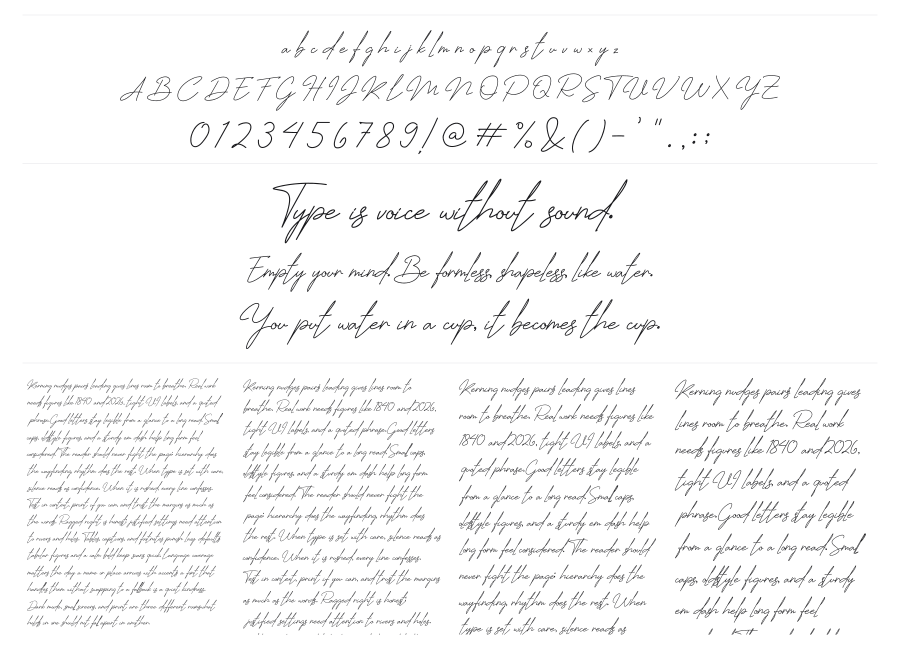 a b c d e f g h i j k l m n o p q r s t u v w x y z
A B C D E F G H I J K L M N O P Q R S T U V W X Y Z
0 1 2 3 4 5 6 7 8 9 ! @ # % & ( ) - ' " . , : ;
Type is voice without sound.
Empty your mind. Be formless, shapeless, like water.
You put water in a cup, it becomes the cup.
Kerning nudges pairs leading gives lines room to breathe. Real work
needs figures like 1840 and 2026, tight UI labels, and a quoted
phrase. Good letters stay legible from a glance to a long read. Small
caps, oldstyle figures, and a sturdy em dash help long form feel
considered. The reader should never fight the page hierarchy does
the wayfinding, rhythm does the rest. When type is set with care,
silence reads as confidence. When it is rushed, every line confesses.
Test in context, print if you can, and trust the margins as much as
the words. Ragged right is honest justified settings need attention
to rivers and holes. Tables, captions, and footnotes punish lazy defaults
tabular figures and a
matters the day a name or place arrives with accents a font that
handles them without swapping to a fallback is a quiet kindness.
Dark mode, small screens, and print are three different
Kerning nudges pairs leading gives lines room to
breathe. Real work needs figures like 1840 and 2026,
tight UI labels, and a quoted phrase. Good letters
stay legible from a glance to a long read. Small caps,
oldstyle figures, and a sturdy em dash help long form
feel considered. The reader should never fight the
page hierarchy does the wayfinding, rhythm does
the rest. When type is set with care, silence reads as
confidence. When it is rushed, every line confesses.
Test in context, print if you can, and trust the margins
as much as the words. Ragged right is honest
justified settings need attention to rivers and holes.
Kerning nudges pairs leading gives lines
room to breathe. Real work needs figures like
1840 and 2026, tight UI labels, and a
quoted phrase. Good letters stay legible
from a glance to a long read. Small caps,
oldstyle figures, and a sturdy em dash help
long form feel considered. The reader should
never fight the page hierarchy does the
wayfinding, rhythm does the rest. When
type is set with care, silence reads as
Kerning nudges pairs leading gives
lines room to breathe. Real work
needs figures like 1840 and 2026,
tight UI labels, and a quoted
phrase. Good letters stay legible
from a glance to a long read. Small
caps, oldstyle figures, and a sturdy
em dash help long form feel